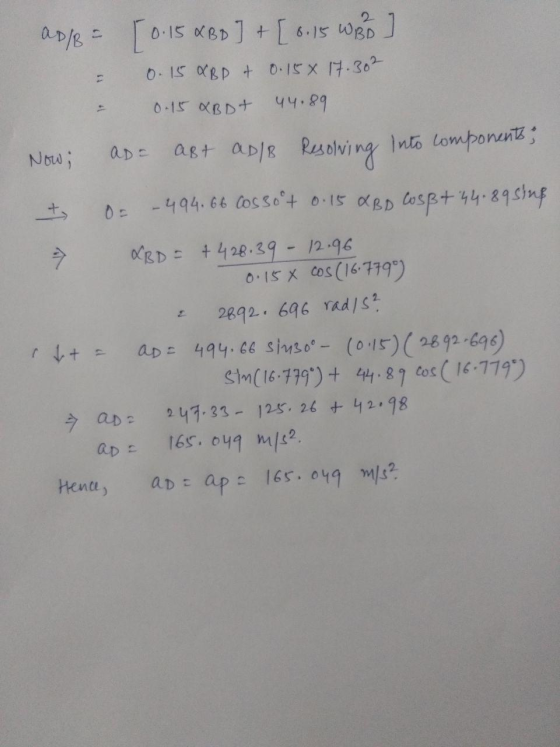 aD/B = [0.15 αBD] + [0.15 ωBD²]
= 0.15 αBD + 0.15 × 17.30²
= 0.15 αBD + 44.89
Now; aD = aB + aD/B Resolving Into components;
+→ 0 = -494.66 cos30° + 0.15 αBD cosβ + 44.89 sinβ
⇒ αBD = +428.39 - 12.96
0.15 × cos(16.779°)
= 2892.696 rad/s².
↓+ = aD = 494.66 sin30° - (0.15)(2892.696)
sin(16.779°) + 44.89 cos(16.779°)
⇒ aD = 247.33 - 125.26 + 42.98
aD = 165.049 m/s².
Hence, aD = ap = 165.049 m/s².